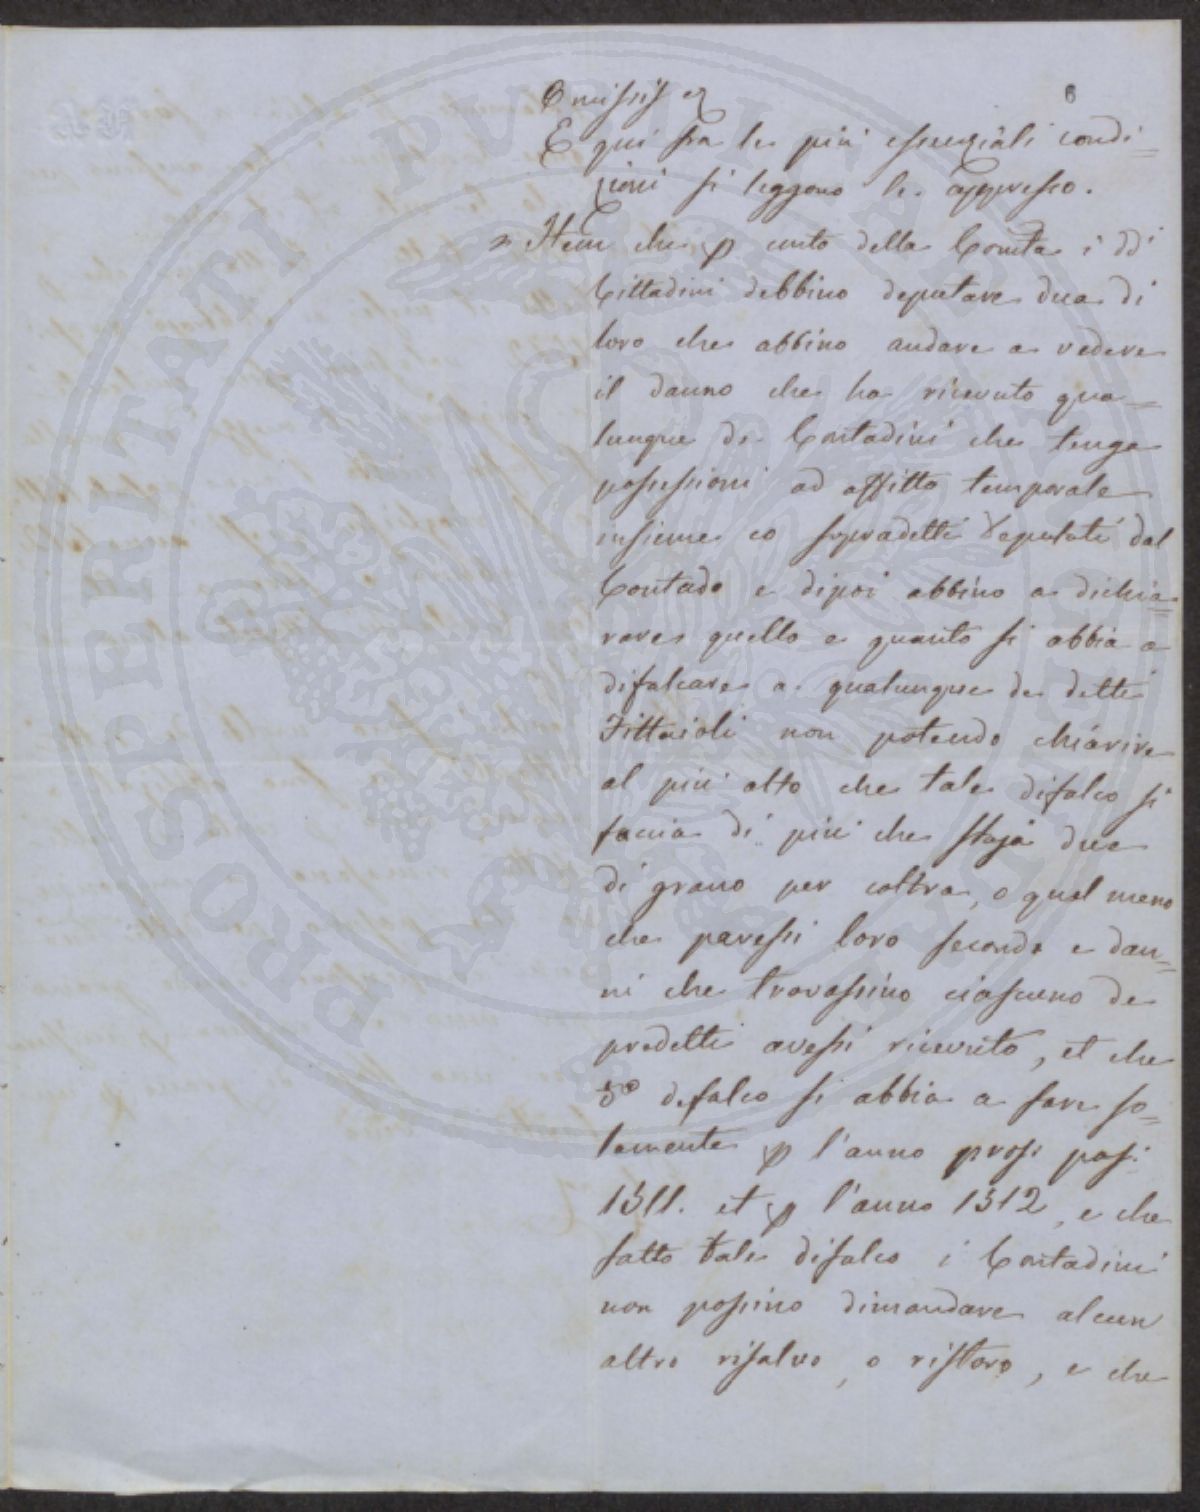 6
Omissis &
E qui fra le più essenziali condi=
zioni si leggono le appresso.
» Item che p conto della Comta i dd.i
Cittadini debbino deputare dua di
loro che abbino andare a vedere
il danno che ha ricevuto qua=
lunque de Contadini che tenga
possessioni ad affitto temporale
insieme co sopradetti Deputati dal
Contado e dipoi abbino a dichia=
rare quello e quanto si abbia a
difalcare a qualunque de detti
Fittaioli non potendo chiarire
al più alto che tale difalco si
faccia di più che staja due
di grano per coltra, o quel meno
che paressi loro secondo e dan=
ni che trovassino ciascuno de
predetti avessi ricevuto, et che
do defalco si abbia a fare so=
lamente p l'anno pross. pass.
1511. et p l'anno 1512, e che
fatto tale difalco i Contadini
non possino dimandare alcun
altro risalvo, o ristoro, e che
PROSPERITATI PUBLICAE